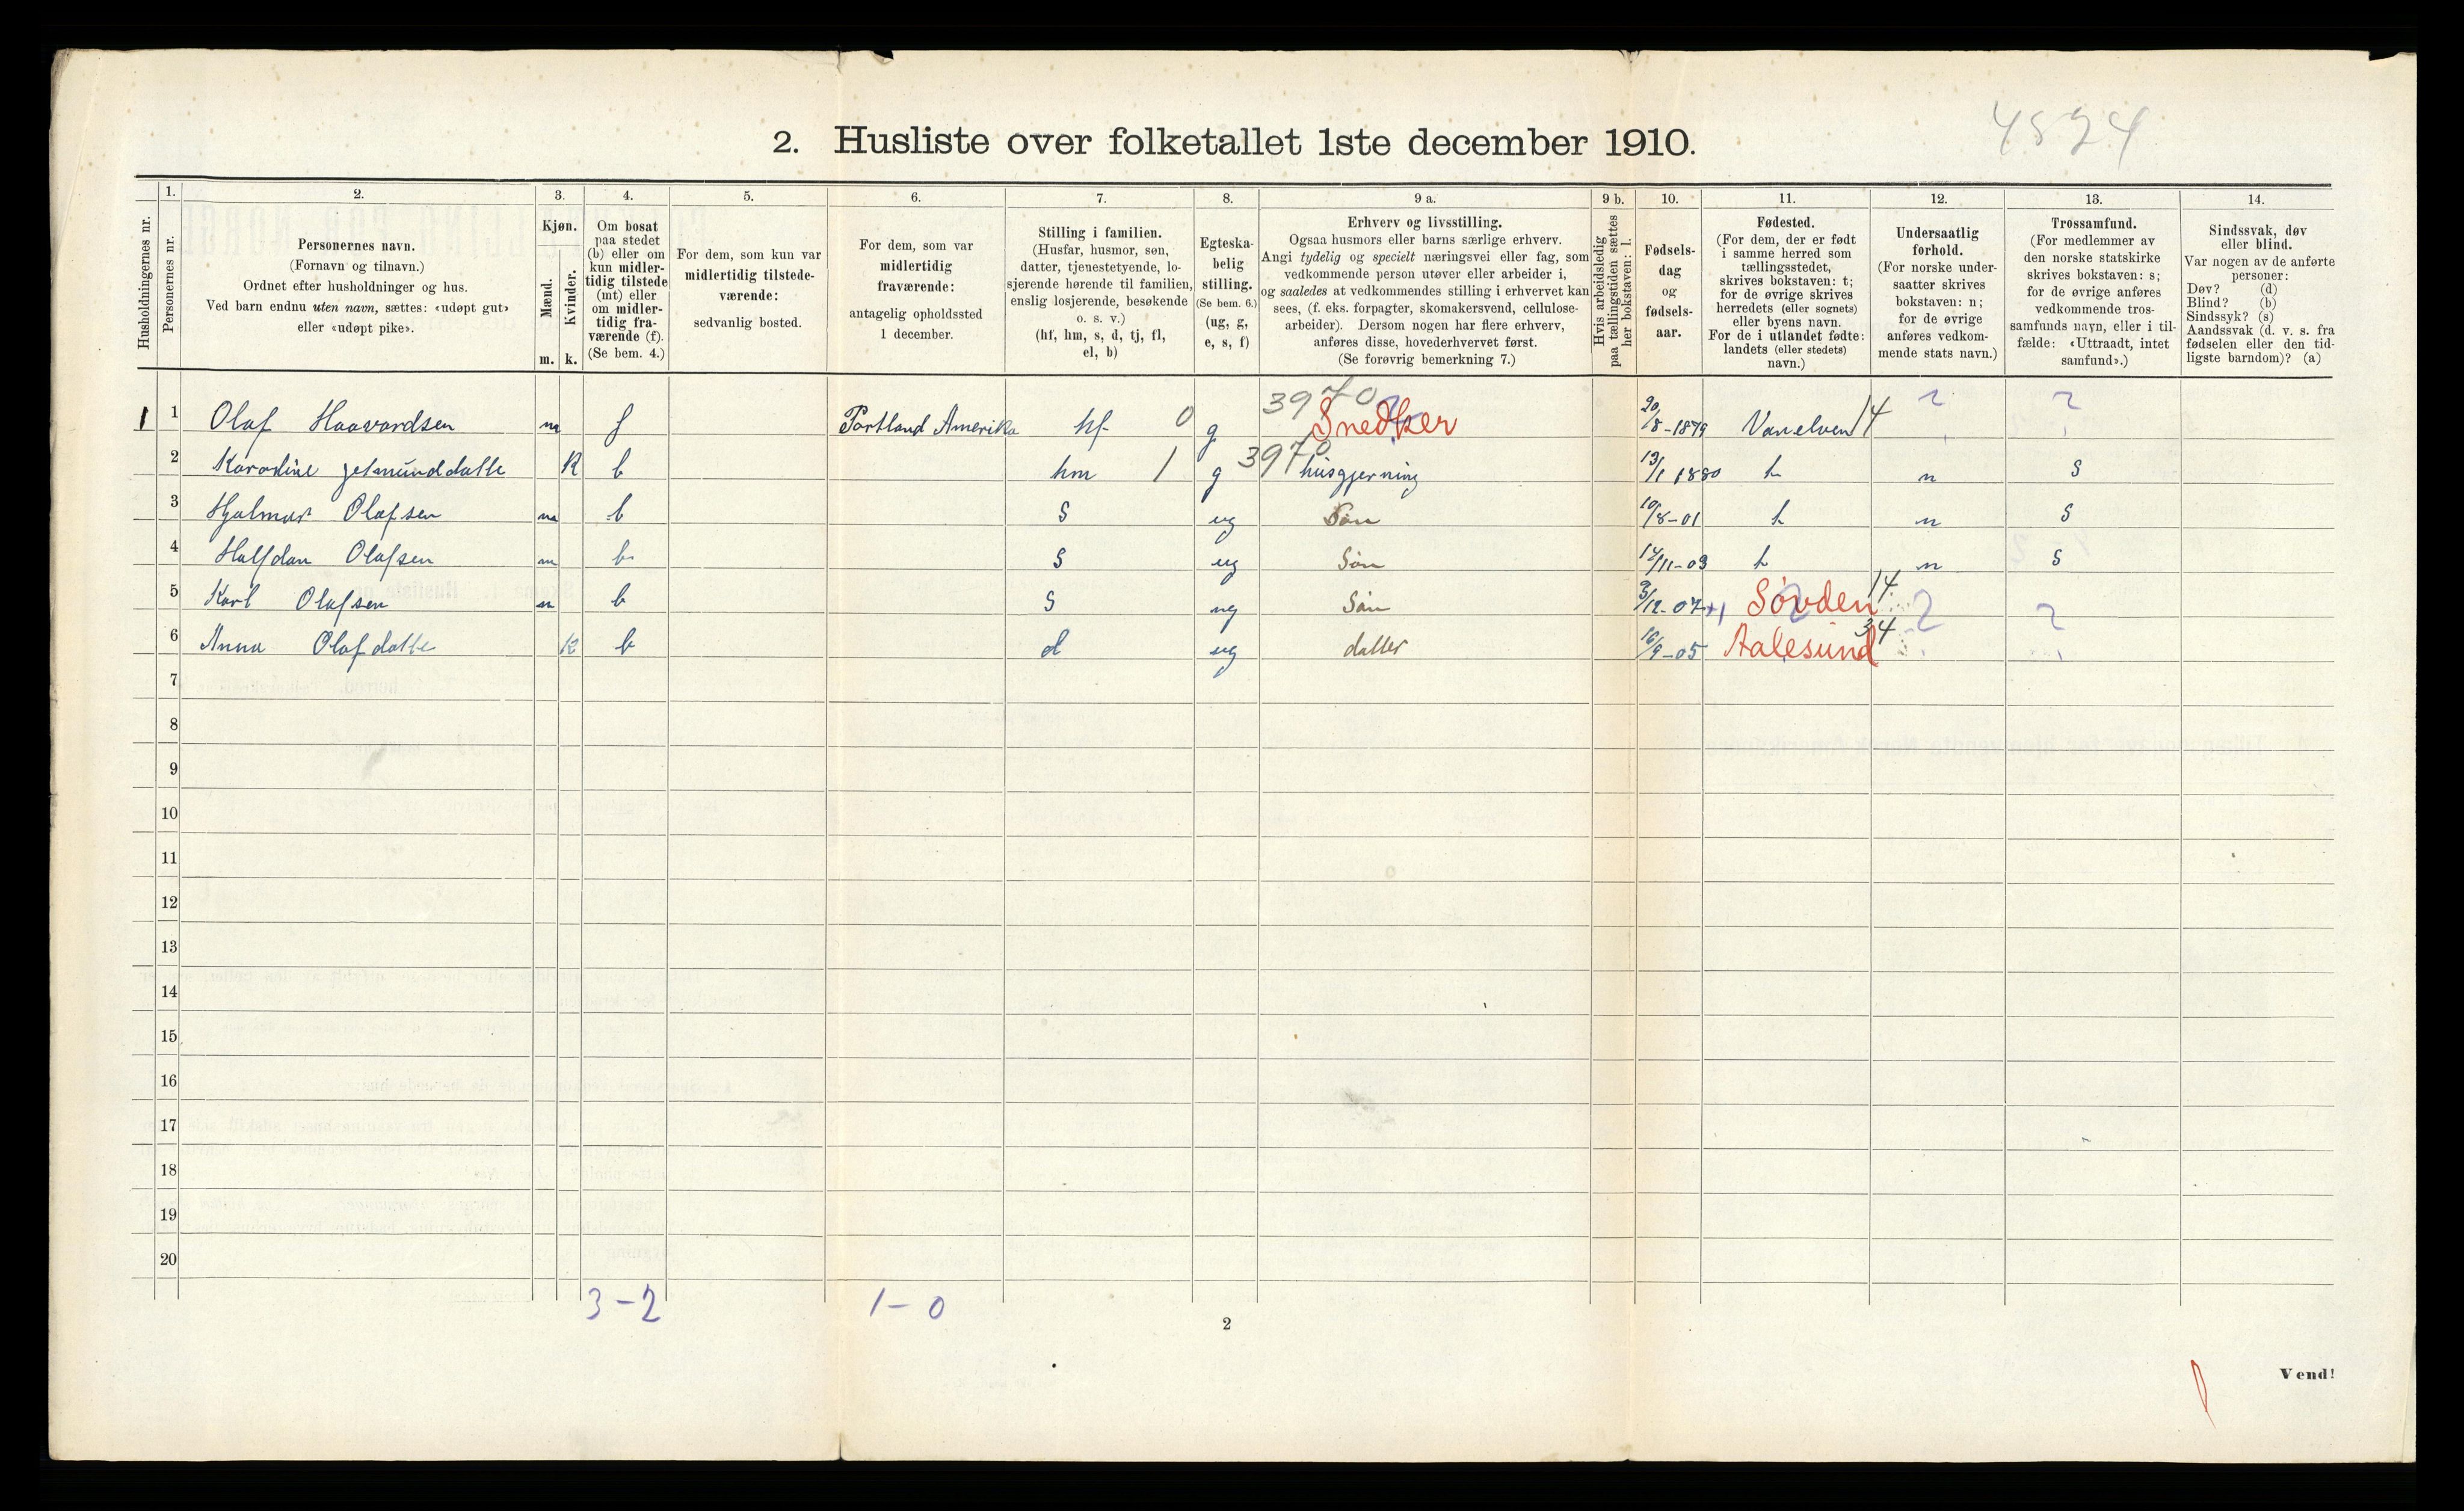 4824
2. Husliste over folketallet 1ste december 1910.
Husholdningernes nr.
1.
Personernes nr.
2.
Personernes navn.
(Fornavn og tilnavn.)
Ordnet efter husholdninger og hus.
Ved barn endnu uten navn, sættes: «udøpt gut»
eller «udøpt pike».
3.
Kjøn.
Mænd.
Kvinder.
m. k.
4.
Om bosat
paa stedet
(b) eller om
kun midler-
tidig tilstede
(mt) eller
om midler-
tidig fra-
værende (f).
(Se bem. 4.)
5.
For dem, som kun var
midlertidig tilstede-
værende:
sedvanlig bosted.
6.
For dem, som var
midlertidig
fraværende:
antagelig opholdssted
1 december.
7.
Stilling i familien.
(Husfar, husmor, søn,
datter, tjenestetyende, lo-
sjerende hørende til familien,
enslig losjerende, besøkende
o. s. v.)
(hf, hm, s, d, tj, fl,
el, b)
8.
Egteska-
belig
stilling.
(Se bem. 6.)
(ug, g,
e, s, f)
9 a.
Erhverv og livsstilling.
Ogsaa husmors eller barns særlige erhverv.
Angi tydelig og specielt næringsvei eller fag, som
vedkommende person utøver eller arbeider i,
og saaledes at vedkommendes stilling i erhvervet kan
sees, (f. eks. forpagter, skomakersvend, cellulose-
arbeider). Dersom nogen har flere erhverv,
anføres disse, hovederhvervet først.
(Se forøvrig bemerkning 7.)
9 b.
Hvis arbeidsledig
paa tællingstiden sættes
her bokstaven: l.
10.
Fødsels-
dag
og
fødsels-
aar.
11.
Fødested.
(For dem, der er født
i samme herred som
tællingsstedet,
skrives bokstaven: t;
for de øvrige skrives
herredets (eller sognets)
eller byens navn.
For de i utlandet fødte:
landets (eller stedets)
navn.)
12.
Undersaatlig
forhold.
(For norske under-
saatter skrives
bokstaven: n;
for de øvrige
anføres vedkom-
mende stats navn.)
13.
Trossamfund.
(For medlemmer av
den norske statskirke
skrives bokstaven: s;
for de øvrige anføres
vedkommende tros-
samfunds navn, eller i til-
fælde: «Uttraadt, intet
samfund».)
14.
Sindssvak, døv
eller blind.
Var nogen av de anførte
personer:
Døv? (d)
Blind? (b)
Sindssyk? (s)
Aandssvak (d. v. s. fra
fødselen eller den tid-
ligste barndom)? (a)
1 1 Olaf Haavardsen m f Portland Amerika hf 0 g 3970 Snedker 20/8-1879 Vanelven 14
2 Karoline K b hm 1 g 3970 husgjerning 13/1 1880 t n s
3 Hjalmar Olafsen m b s ug Søn 10/8-01 t n s
4 Halfdan Olafsen m b s ug Søn 14/11-03 t n s
5 Karl Olafsen m b s ug Søn 3/12-07 Søvden 14 2 2
6 Anna Olafdatte K b d ug datter 16/9-05 Aalesund 34
7
8
9
10
11
12
13
14
15
16
17
18
19
20
3-2 1-0
2
Vend!